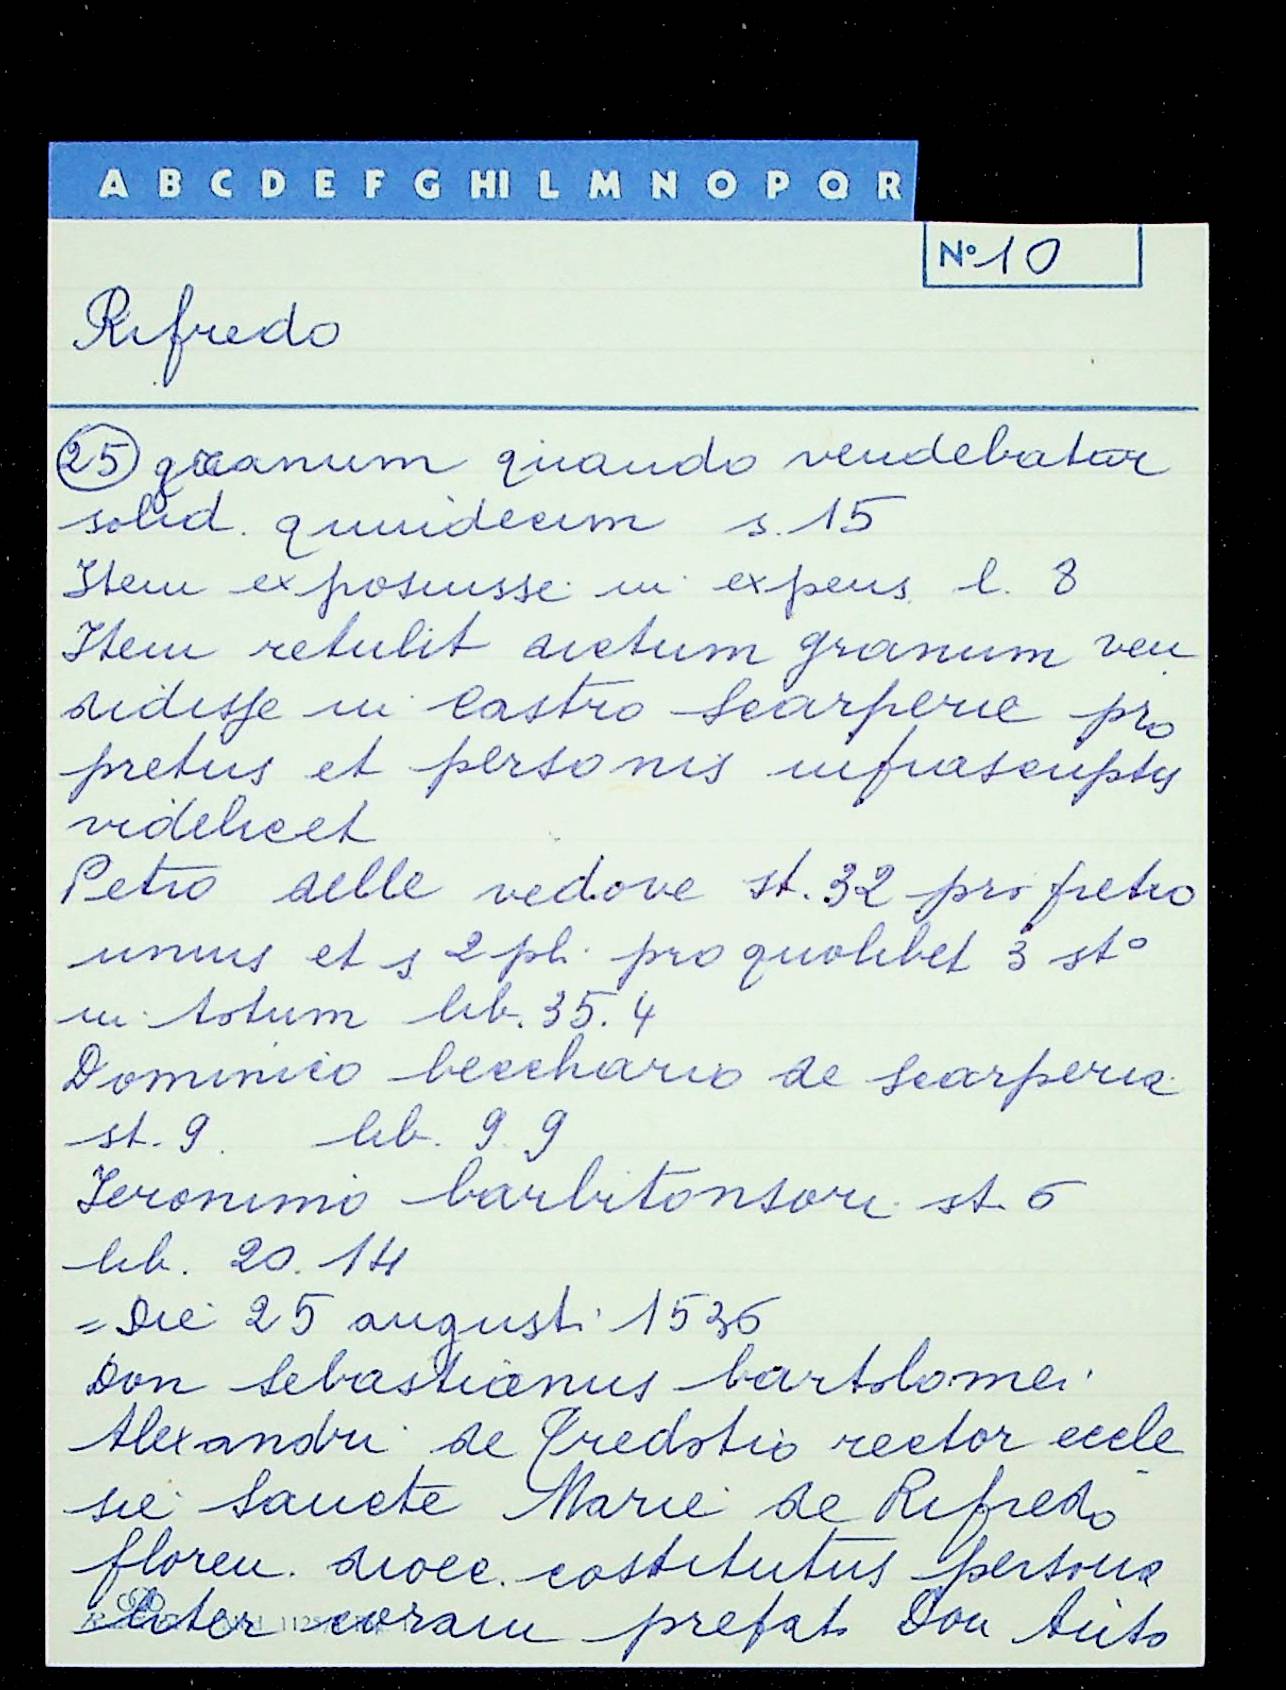 A B C D E F G HI L M N O P Q R
N° 10
Rifredo
25 granum quando vendebatur
solid. quindecim s. 15
Item exposuisse in expens l. 8
Item retulit dictum granum ven
didisse in Castro Scarperie pro
pretiis et personis infrascriptis
videlicet
Petro delle vedove st. 32 pro pretio
unius et s 2 pli pro quolibet 3 st°
in totum lib. 35. 4
Dominico becchario de Scarperia
st. 9. lib. 9. 9
Ieronimo barbitonsori st. 6
lib. 20. 14
= Die 25 augusti 1536
Don Sebastianus bartolomei
Alexandri de Credotio rector eccle
sie Sancte Marie de Rifredo
floren. dioec. costitutus persona
liter coram prefato Don Anto